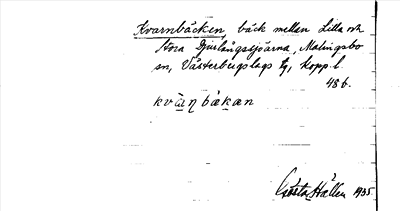 Kvarnbäcken, bäck mellan Lilla och
Stora Djurlångssjöarna, Malingsbo
sn, Västerbergslags tg, Kopp. l.
48 b.
Gösta Hallen 1935